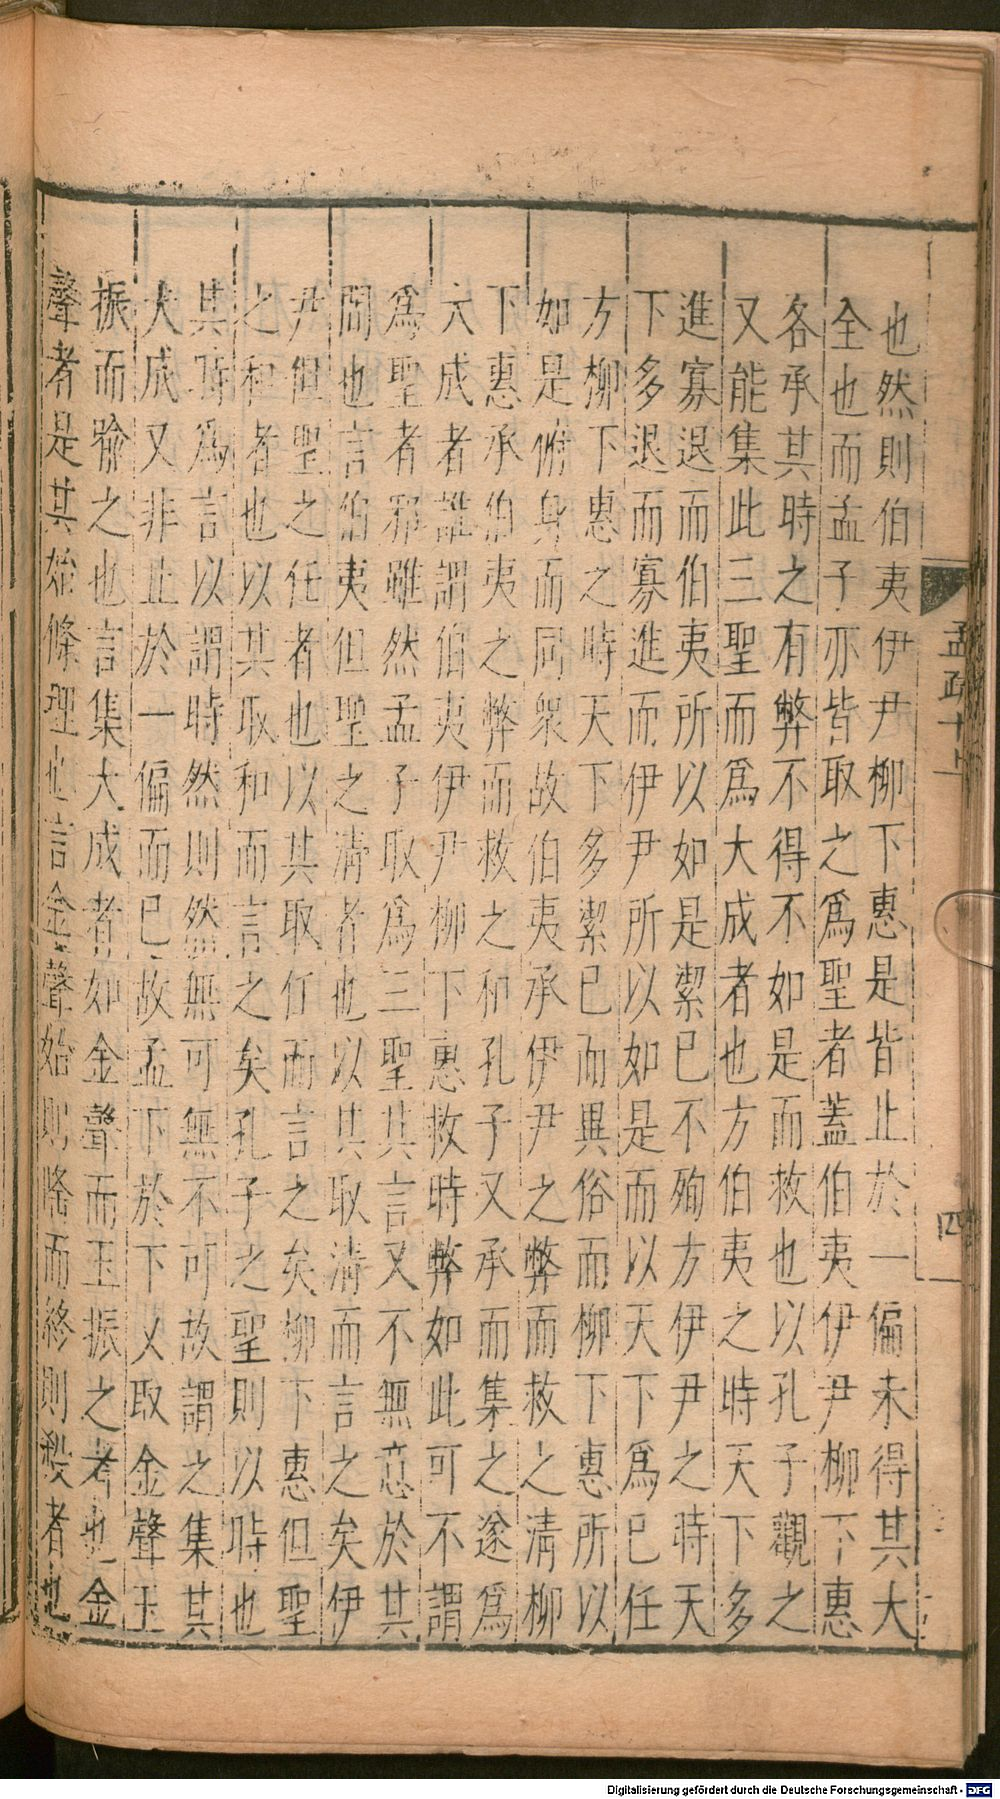 也然則伯夷伊尹柳下惠是皆止於一偏未得其大
全也而孟子亦皆取之爲聖者蓋伯夷伊尹柳下惠
各承其時之有弊不得不如是而救也以孔子觀之
又能集此三聖而爲大成者也方伯夷之時天下多
進寡退而伯夷所以如是潔已不殉方伊尹之時天
下多退而寡進而伊尹所以如是而以天下爲已任
方柳下惠之時天下多潔已而異俗而柳下惠所以
如是俯身而同衆故伯夷承伊尹之弊而救之清柳
下惠承伯夷之弊而救之和孔子又承而集之遂爲
大成者誰謂伯夷伊尹柳下惠救時弊如此可不謂
爲聖者邪雖然孟子取爲三聖其言又不無意於其
間也言伯夷但聖之清者也以其取清而言之矣伊
尹但聖之任者也以其取任而言之矣柳下惠但聖
之和者也以其取和而言之矣孔子之聖則以時也
其時爲言以謂時然則然無可無不可故謂之集其
大成又非止於一偏而已故孟下於下又取金聲玉
振而喻之也言集大成者如金聲而玉振之者也金
聲者是其始條理也言金聲始則隆而終則殺者也
孟疏十上
四
Digitalisierung gefördert durch die Deutsche Forschungsgemeinschaft - DFG